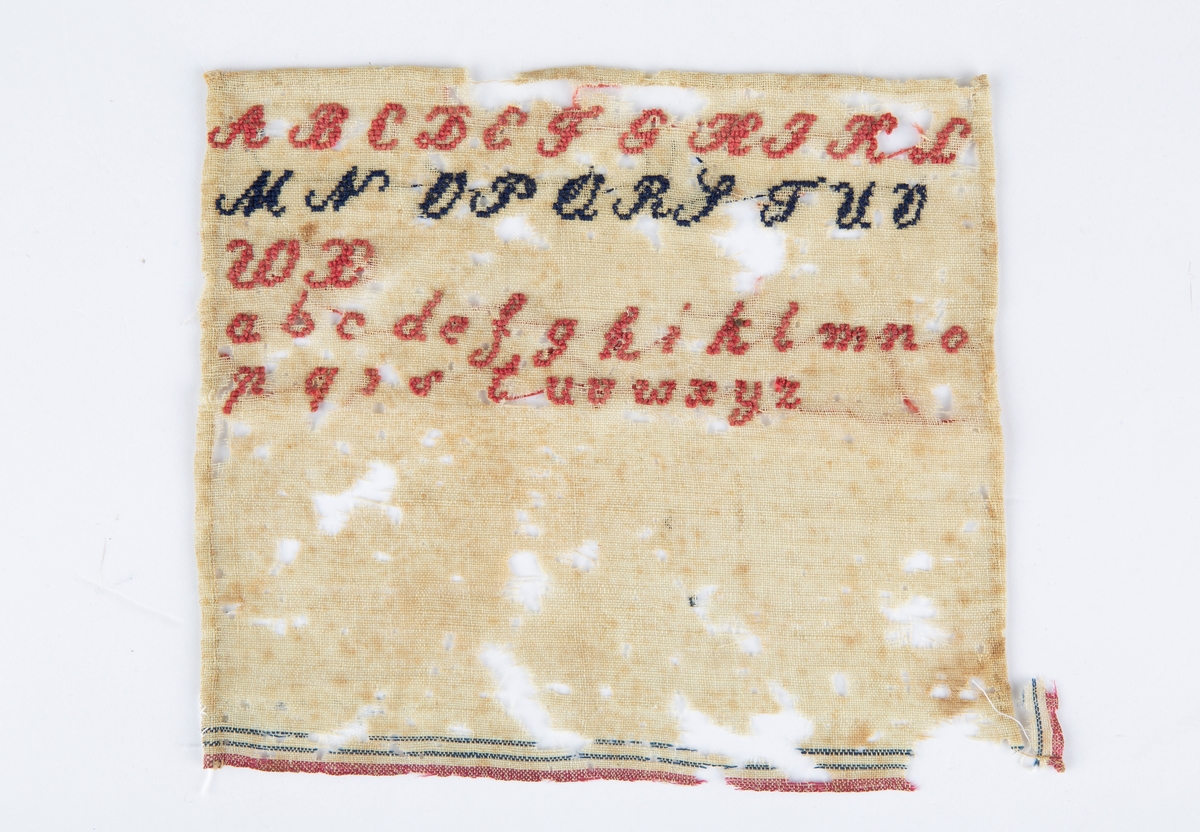 A B C D E F G H I K L
M N O P Q R S T U V
W X
a b c d e f g h i k l m n o
p q r s t u v w x y z